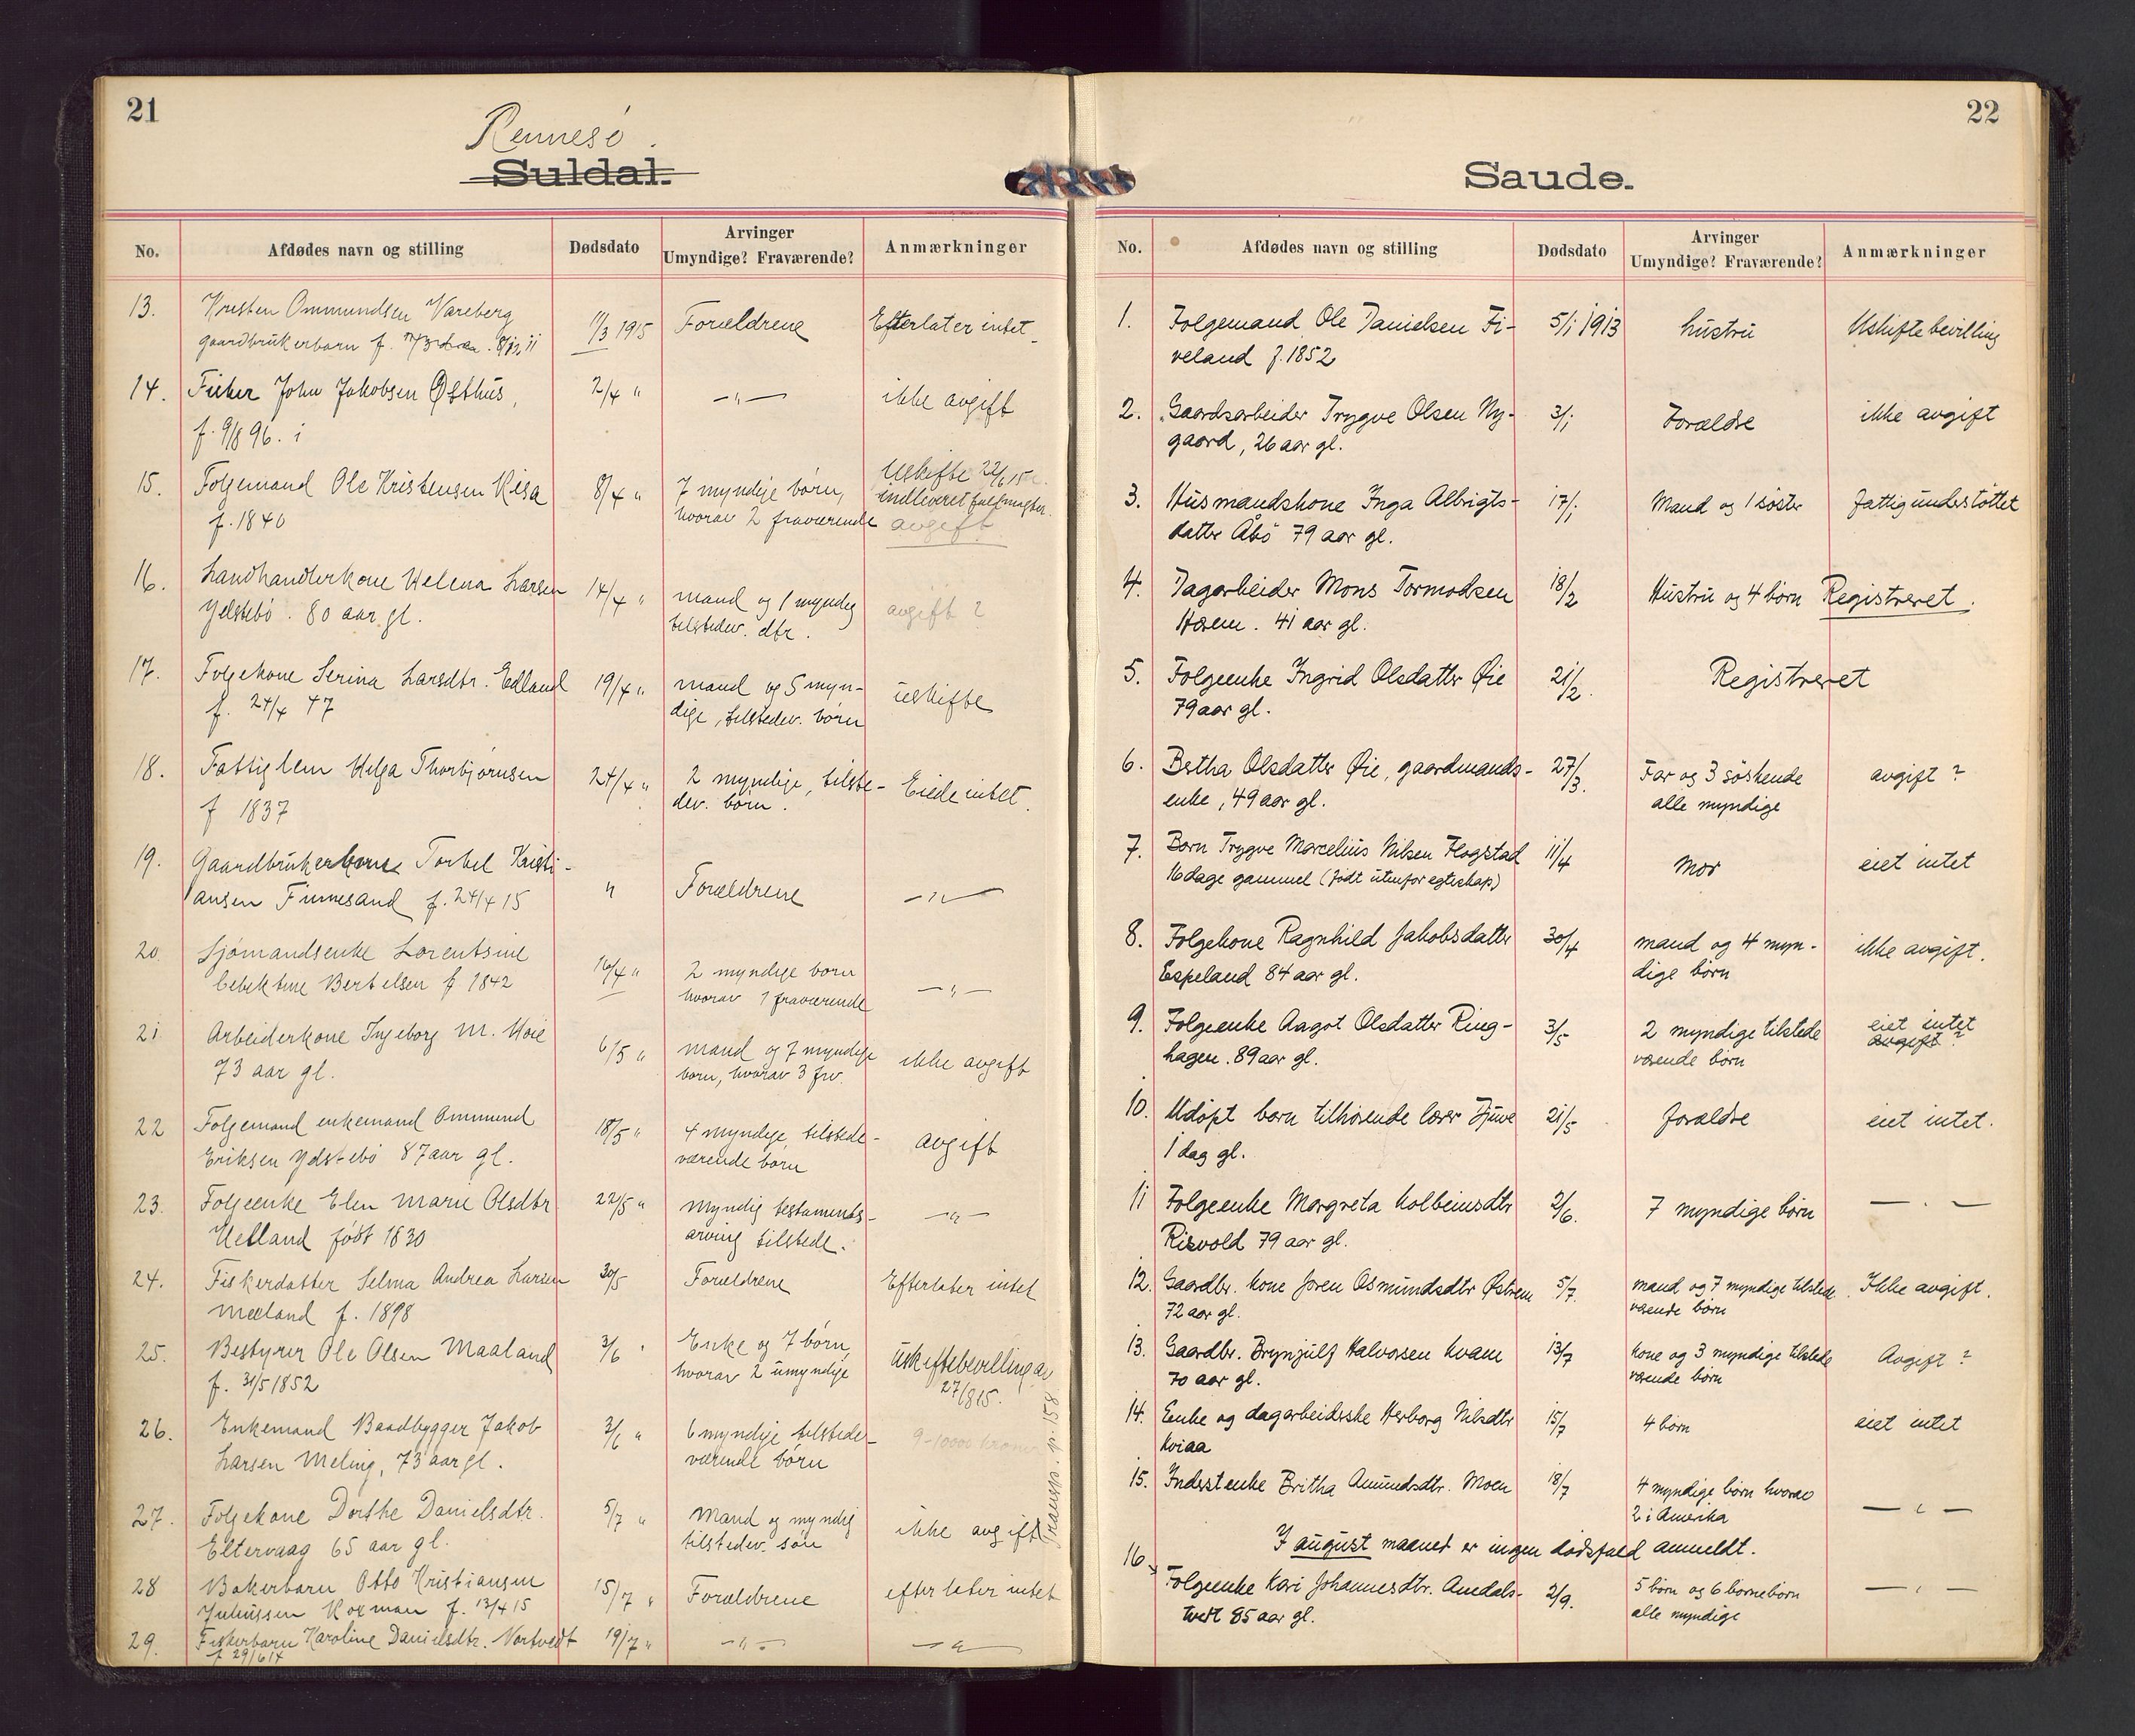 21
Rennesö.
Suldal.
No. Afdødes navn og stilling Dødsdato Arvinger Umyndige? Fraværende? Anmærkninger
13. Kristen Ommundsen Vareberg 11/3 1915 Forældrene Efterlater intet
gaardbrukerbarn f.
14. Fisker John Jakobsen Østhus, 2/4 " —"— ikke avgift
f. 9/8 96.
15. Folgemand Ole Kristensen Risa 8/4 " 7 myndige børn, Uskifte 22/6 15
f. 1840 hvorav 2 fraværende indleveret avgift
16. Landhandlerkone Helena Larsen 14/4 " mand og 1 myndig avgift ?
Ydstebö. 80 aar gl. tilstedev. dtr.
17. Folgekone Serina Larsdtr. Edland 19/4 " mand og 5 myn- uskifte
f. 24/4 47 dige, tilstedev. børn
18. Fattiglem Helga Thorbjørnsen 24/4 " 2 myndige, tilste- Eiede intet.
f 1837 dev. børn.
19. Gaardbrukerbarn Torkel Kristi- " Forældrene —"—
ansen Finnesand f. 24/4 15
20 Sjömandsenke Lorentsine 16/4 " 2 myndige born —"—
Bertelsen f 1842 hvorav 1 fraværende
21 Arbeiderkone Ingeborg M. Hoie 6/5 " mand og 7 myndige ikke avgift
73 aar gl. born, hvorav 3 frv.
22 Folgemand enkemand Ommund 18/5 " 4 myndige, tilstede- avgift
Eriksen Ydstebö 87 aar gl. værende born
23. Folgeenke Elen Marie Olsdtr 22/5 " Myndig testaments- —"—
Hetland født 1830 arving tilstede.
24. Fiskerdatter Selma Andrea Larsen 30/5 Forældrene Efterlater intet
Mæland f. 1898
25. Bestyrer Ole Olsen Maaland 3/6 " Enke og 7 børn, uskiftebevilling av
f. 31/5 1852 hvorav 2 umyndige 27/8 15.
26. Enkemand Baadbygger Jakob 3/6 " 6 myndige tilstede- 9-10000 kroner
Larsen Meling, 73 aar gl. værende børn
27. Folgekone Dorthe Danielsdtr. 5/7 " Mand og myndig ikke avgift
Eltervaag 65 aar gl. tilstedev. søn
28 Bakerbarn Otto Kristiansen 15/7 " Forældrene efterlater intet
Juliussen f. 13/4 15
29. Fiskerbarn Karoline Danielsdtr. Nortvedt 19/7 " —"— —"—
f 29/6 14
Transp. p. 158
22
Saude.
No. Afdødes navn og stilling Dødsdato Arvinger Umyndige? Fraværende? Anmærkninger
1. Folgemand Ole Danielsen Fi- 5/1 1913 hustru Uskiftebevilling
veland f. 1852
2. Gaardsarbeider Trygve Olsen Ny- 3/1 Forældre ikke avgift
gaard, 26 aar gl.
3. Husmandskone Inga Albrigts- 17/1 Mand og 1 søster fattigunderstöttet
datter Åbö 79 aar gl.
4. Dagarbeider Mons Tormodsen 18/2 Hustru og 4 børn Registreret.
Hoem. 41 aar gl.
5. Folgeenke Ingrid Olsdatter Øie 21/2. Registreret
79 aar gl.
6. Bertha Olsdatter Øie, gaardmands- 27/3. Far og 3 söskende avgift ?
enke, 49 aar gl. alle myndige
7. Barn Trygve Marcelius Nilsen Hogstad 11/4 Mor eiet intet
16 dage gammel (født utenfor egteskap)
8. Folgekone Ragnhild Jakobsdatter 30/4 mand og 4 myn- ikke avgift.
Espeland 84 aar gl. dige börn
9. Folgeenke Aagot Olsdatter Ring- 3/5 2 myndige tilstede eiet intet
hagen. 89 aar gl. værende börn avgift ?
10. Udöpt barn tilhörende lærer Djuve 21/5 forældre eiet intet.
1 dag gl.
11 Folgeenke Margreta Kolbeinsdtr 2/6. 7 myndige börn — " —
Risvold 79 aar gl.
12. Gaardbr. kone Joren Osmundsdtr Østrem 5/7. mand og 7 myndige tilstede Ikke avgift.
72 aar gl. værende börn
13. Gaardbr. Brynjulf Halvorsen Kvam 13/7 kone og 3 myndige tilstede Avgift ?
70 aar gl. værende börn
14. Enke og dagarbeiderske Herborg Nilsdtr 15/7 4 børn eiet intet
Kviaa
15. Inderstenke Britha Amundsdtr. Moen 18/7 4 myndige børn hvorav — " —
2 i Amerika
I august maaned er ingen dødsfald anmeldt.
16 Folgeenke Kari Johannesdtr. Amdals- 2/9. 5 börn og 6 börnebörn — " —
tvedt 85 aar gl. alle myndige